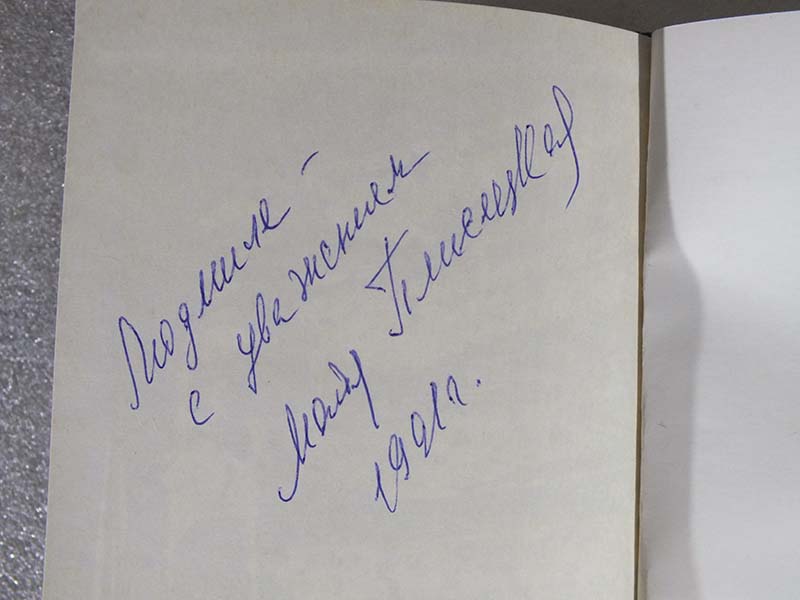 Людмиле –
с уважением
Майя Плисецкая
1991г.